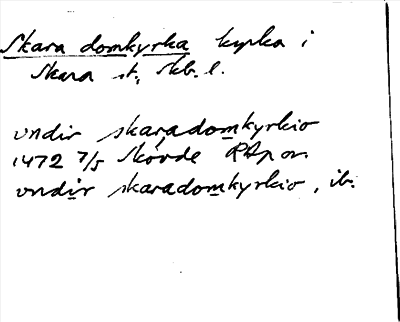 Skara domkyrka kyrka i
Skara st, Skb. l.
vndir skaradomkyrkio
1472 7/5 Skövde RAp or.
vndir skaradomkyrkio, ib.